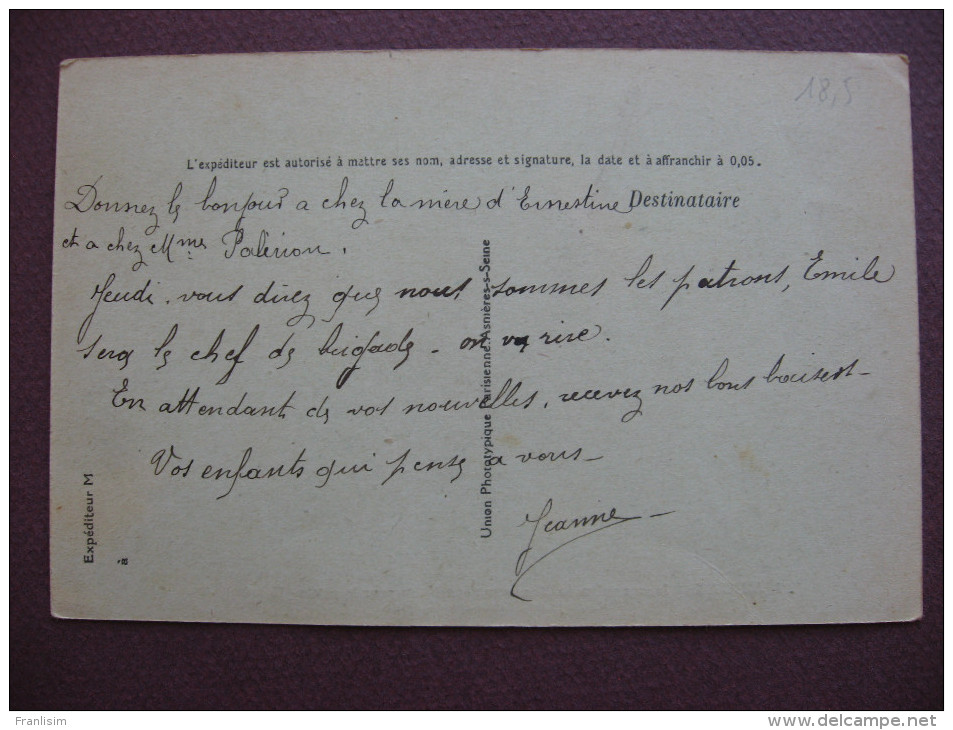 18,5
L'expéditeur est autorisé à mettre ses nom, adresse et signature, la date et à affranchir à 0,05.
Donnez le bonjour a chez la mère d'Ernestine
Destinataire
et a chez Mme
Jeudi, vous direz que nous sommes les patrons, Emile
sera le chef de brigade - on va rire.
En attendant de vos nouvelles, recevez nos bons baisers -
Vos enfants qui pense a vous -
Jeanne -
Expéditeur M
à
Union Phototypique Parisienne. Asnières-s-Seine
Franlisim
http://www.delcampe.net